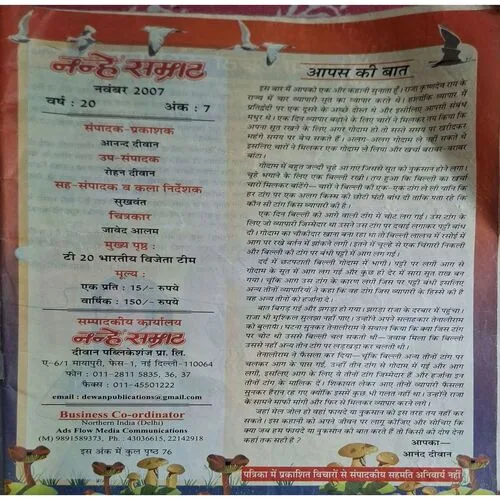 नन्हें सम्राट
नवंबर 2007
वर्ष : 20 अंक : 7
संपादक-प्रकाशक
आनन्द दीवान
उप-संपादक
रोहन दीवान
सह-संपादक व कला निर्देशक
सुखवंत
चित्रकार
जावेद आलम
मुख्य पृष्ठ :
टी 20 भारतीय विजेता टीम
मूल्य :
एक प्रति : 15/– रुपये
वार्षिक : 150/– रुपये
सम्पादकीय कार्यालय
नन्हें सम्राट
दीवान पब्लिकेशंज प्रा. लि.
ए-6/1 मायापुरी, फेस-1, नई दिल्ली-110064
फोन : 011-2811 5835, 36, 37
फैक्स : 011-45501222
email : dewanpublications@gmail.com
Business Co-ordinator
Northern India (Delhi)
Ads Flow Media Communications
(M) 9891589373, Ph. : 43036615, 22142918
इस अंक में कुल पृष्ठ 76
आपस की बात
इस बार मैं आपको एक और कहानी सुनाता हूँ। राजा कृष्णदेव राय के
राज्य में चार व्यापारी सूत का व्यापार करते थे। हालांकि व्यापार में
प्रतिद्वंदी पर एक दूसरे के अच्छे दोस्त थे और इसीलिए आपसी संबंध
मधुर थे। एक दिन व्यापार बढ़ाने के लिए चारों ने मिलकर तय किया कि
अपना सूत रखने के लिए अगर गोदाम हो तो सस्ते समय पर खरीदकर
महंगे समय पर बेच सकते हैं। अलग-अलग गोदाम ले नहीं सकते थे
इसलिए चारों ने मिलकर एक गोदाम ले लिया और खर्चा बराबर-बराबर
बांटा।
गोदाम में बहुत जल्दी चूहे आ गए जिससे सूत को नुकसान होने लगा।
चूहे भगाने के लिए एक बिल्ली रखी। तय हुआ कि बिल्ली का खर्चा
चारों मिलकर बांटेंगे— चारों ने बिल्ली की एक-एक टांग ले ली यानि कि
हर टांग पर एक अलग किस्म की छोटी घंटी बांध दी ताकि पता रहे कि
कौन सी टांग किस व्यापारी की है।
एक दिन बिल्ली की आगे वाली टांग में चोट लग गई। उस टांग के
लिए जो व्यापारी जिम्मेदार था उसने उस टांग पर दवाई लगाकर पट्टी बांध
दी। गोदाम का चौकीदार खाना बना रहा था तो बिल्ली लालच में रसोई में
आग पर रखे बर्तन में झांकने लगी। इतने में चूल्हे से एक चिंगारी निकली
और बिल्ली की टांग पर बंधी पट्टी में आग लग गई।
दर्द में छटपटाती बिल्ली गोदाम में भागी। पट्टी पर लगी आग से
गोदाम के सूत में आग लग गई और कुछ ही देर में सारा सूत राख बन
गया। चूंकि आग उस टांग के कारण लगी जिस पर पट्टी बंधी इसलिए
अन्य तीनों व्यापारियों ने कहा कि वह टांग जिस व्यापारी के हिस्से की है
वह अन्य तीनों को हर्जाना दे।
बात बिगड़ गई और झगड़ा हो गया। झगड़ा राजा के दरबार में पहुंचा।
राजा भी मुश्किल सुलझा नहीं पाए। उन्होंने अपने सलाहकार तेनालीराम
को बुलाया। घटना सुनकर तेनालीराम ने सवाल किया कि क्या जिस टांग
पर चोट थी उससे बिल्ली चल सकती थी—जवाब मिला कि बिल्ली
उससे नहीं अन्य तीन टांग पर लड़खड़ा कर चलती थी।
तेनालीराम ने फैसला कर दिया— चूंकि बिल्ली अन्य तीनों टांग पर
चलकर आग के पास गई, उन्हीं तीन टांग से गोदाम में गई और आग
लगी, इसलिए आग के लिए ये तीनों टांग जिम्मेदार हैं और हर्जाना इन
तीनों टांग के मालिक दें। शिकायत लेकर आए तीनों व्यापारी फैसला
सुनकर हैरान रह गए क्योंकि इसमें कुछ भी गलत नहीं था। उन्होंने राजा
के सामने माफी मांगी और फिर से मिलकर व्यापार करने लगे।
जहां मेल जोल हो वहां फायदे या नुकसान को इस तरह तय नहीं कर
सकते। इस कहानी को अपने जीवन पर लागू कीजिए और सोचिए कि
क्या जब हम फायदे या नुकसान की बात करते हैं तो किसी को दोष देना
कहां तक सही है ?
आपका—
आनंद दीवान
पत्रिका में प्रकाशित विचारों से संपादकीय सहमति अनिवार्य नहीं